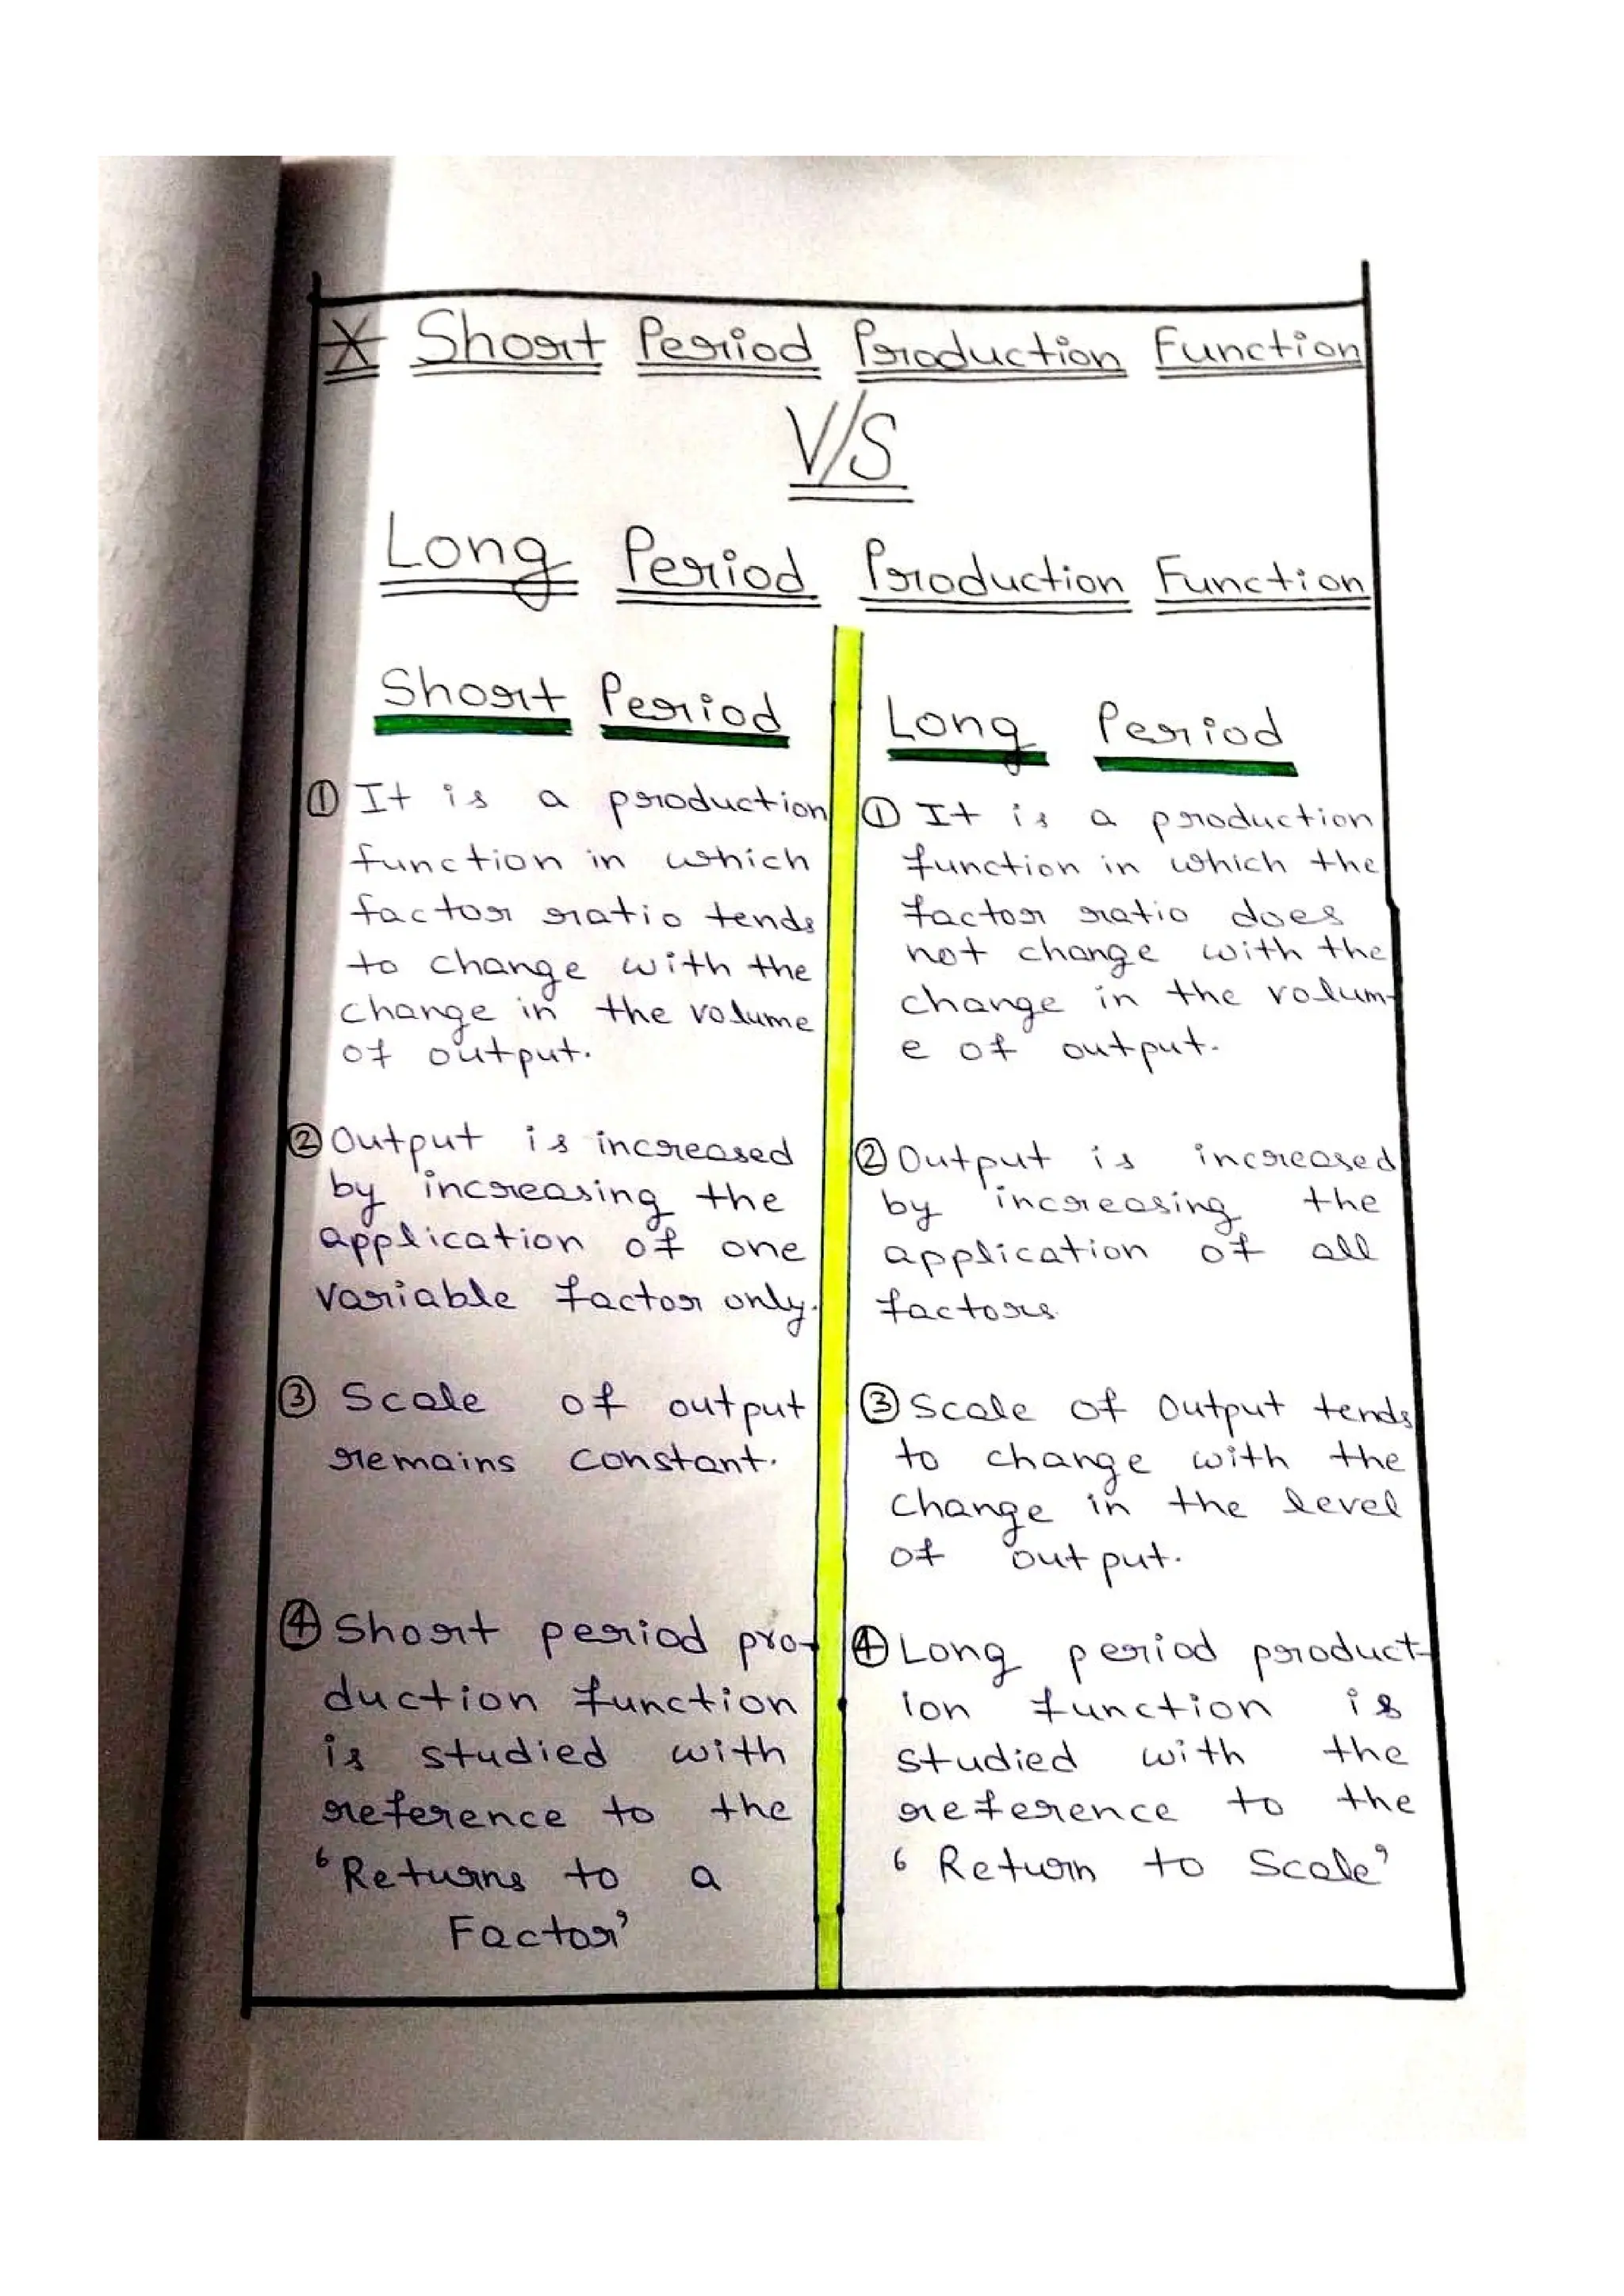 * Short Period Production Function
V/S
Long Period Production Function
Short Period
① It is a production
function in which
factor ratio tends
to change with the
change in the volume
of output.
② Output is increased
by increasing the
application of one
variable factor only.
③ Scale of output
remains constant.
④ Short period pro-
duction function
is studied with
reference to the
‘Returns to a
Factor’
Long Period
① It is a production
function in which the
factor ratio does
not change with the
change in the volum-
e of output.
② Output is increased
by increasing the
application of all
factors.
③ Scale of Output tends
to change with the
change in the level
of output.
④ Long period product-
ion function is
studied with the
reference to the
‘Return to Scale’